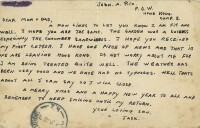 John. A. Rix
P.O.W.
Hong Kong.
Camp. S.
Dear Mum & Dad,
A few lines to let you know I am fit and
well. I hope you are the same. The garden was a success
especially the cucumber sandwiches. I hope you received
my first letter. I have one piece of news and that is
we are leaving Hong Kong. Do not worry about me for
I am being treated quite well. The weather has
been very good and we have had no typhoons. Well that's
about all I can say so I will close
A merry xmas and a happy new year to all and
remember to keep smiling until my return.
Your loving son,
Jack.